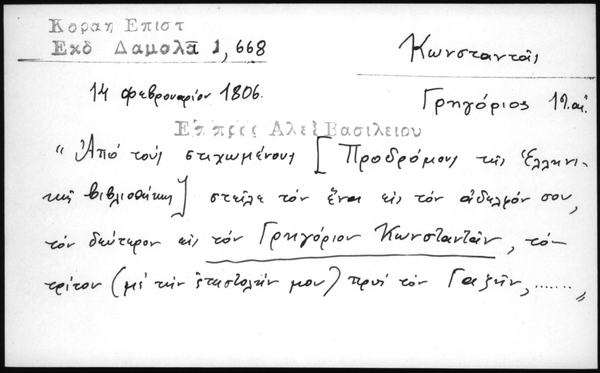 Κοραη Επιστ
Εκδ Δαμαλᾶ 1, 668
Κωνσταντᾶς
14 Φεβρουαρίου 1806.
Γρηγόριος 19. αἰ.
Επ πρες Αλεξ Βασιλειου
"Ἀπό τούς στιχωμένους [Προδρόμους τῆς Ἑλληνι-
κῆς βιβλιοθήκης] στεῖλε τόν ἕνα εἰς τόν ἀδελφόν σου,
τόν δεύτερον εἰς τόν Γρηγόριον Κωνσταντᾶν, τό-
τρίτον (μέ τήν ἐπιστολήν μου) πρός τόν Γαζῆν, ......."